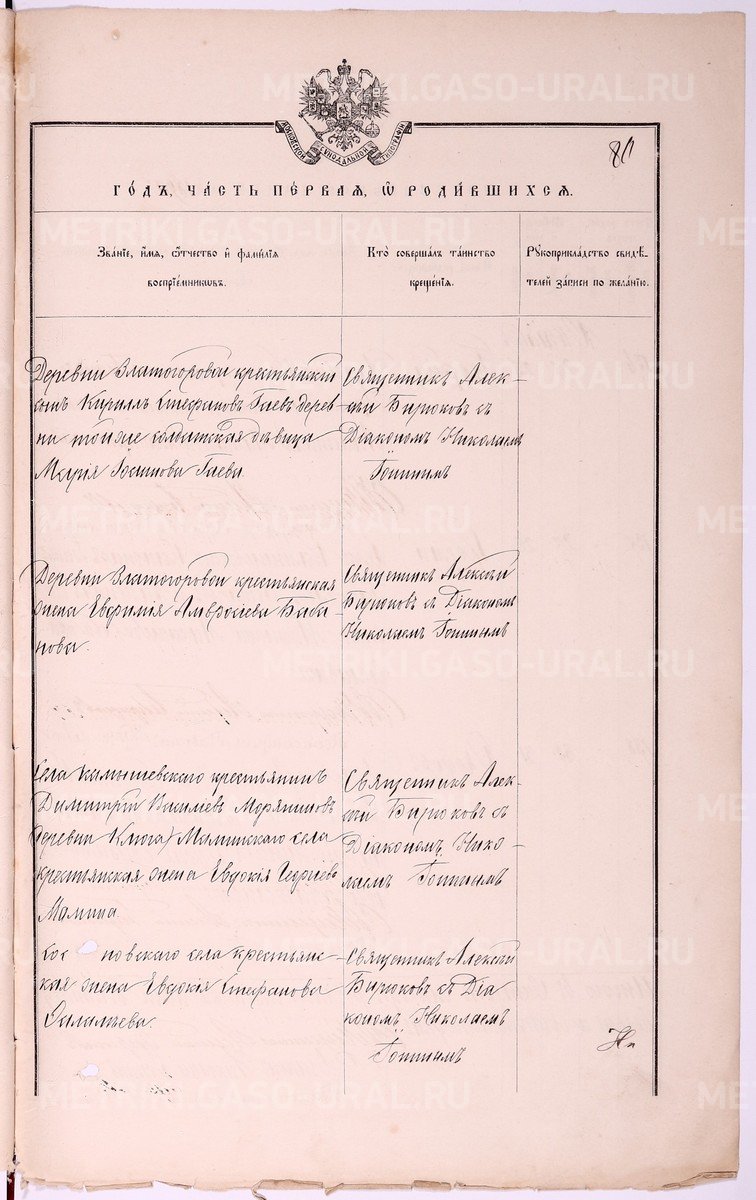 METRIKI.GASO-URAL.RU
МОСКОВСКОЙ СѴНОДАЛЬНОЙ ТИПОГРАФІИ
80
ГО́ДЪ, ЧА́СТЬ ПЕ́РВАЯ, Ѡ҆ РОДИ́ВШИХСЯ.
METRIKI.GASO-URAL.RU
Зва́нїе, и҆́мя, ѻ҆́тчество и҆ фами́лїя
воспрїе́мниковъ.
Кто̀ соверша́лъ та́инство
креще́нїя.
Рꙋкоприкла́дство свидѣ́-
телей за́писи по жела́нїю.
Деревни Златогоровой крестьянскій
сынъ Кириллъ Стефановъ Гаевъ дерев-
ни тойже солдатская дѣвица
Марія Іосипова Гаева
Священникъ Алек-
сѣй Бирюковъ съ
Діакономъ Николаемъ
METRIKI.GASO-URAL.RU
Деревни Златогоровой крестьянская
жена Евфимія Амвросіева Баба-
нова.
Священникъ Алексѣй
Бирюковъ съ Діакономъ
Николаемъ
METRIKI.GASO-URAL.RU
Села Камышевскаго крестьянинъ
Димитрій Василіевъ
деревни Маминскаго села
крестьянская жена Евдокія Георгіева
Мамина.
Священникъ Алек-
сѣй Бирюковъ съ
Діакономъ Нико-
лаемъ
METRIKI.GASO-URAL.RU
новскаго села крестьянс-
кая жена Евдокія Стефанова
Священникъ Алексѣй
Бирюковъ съ Діа-
кономъ Николаемъ
METRIKI.GASO-URAL.RU